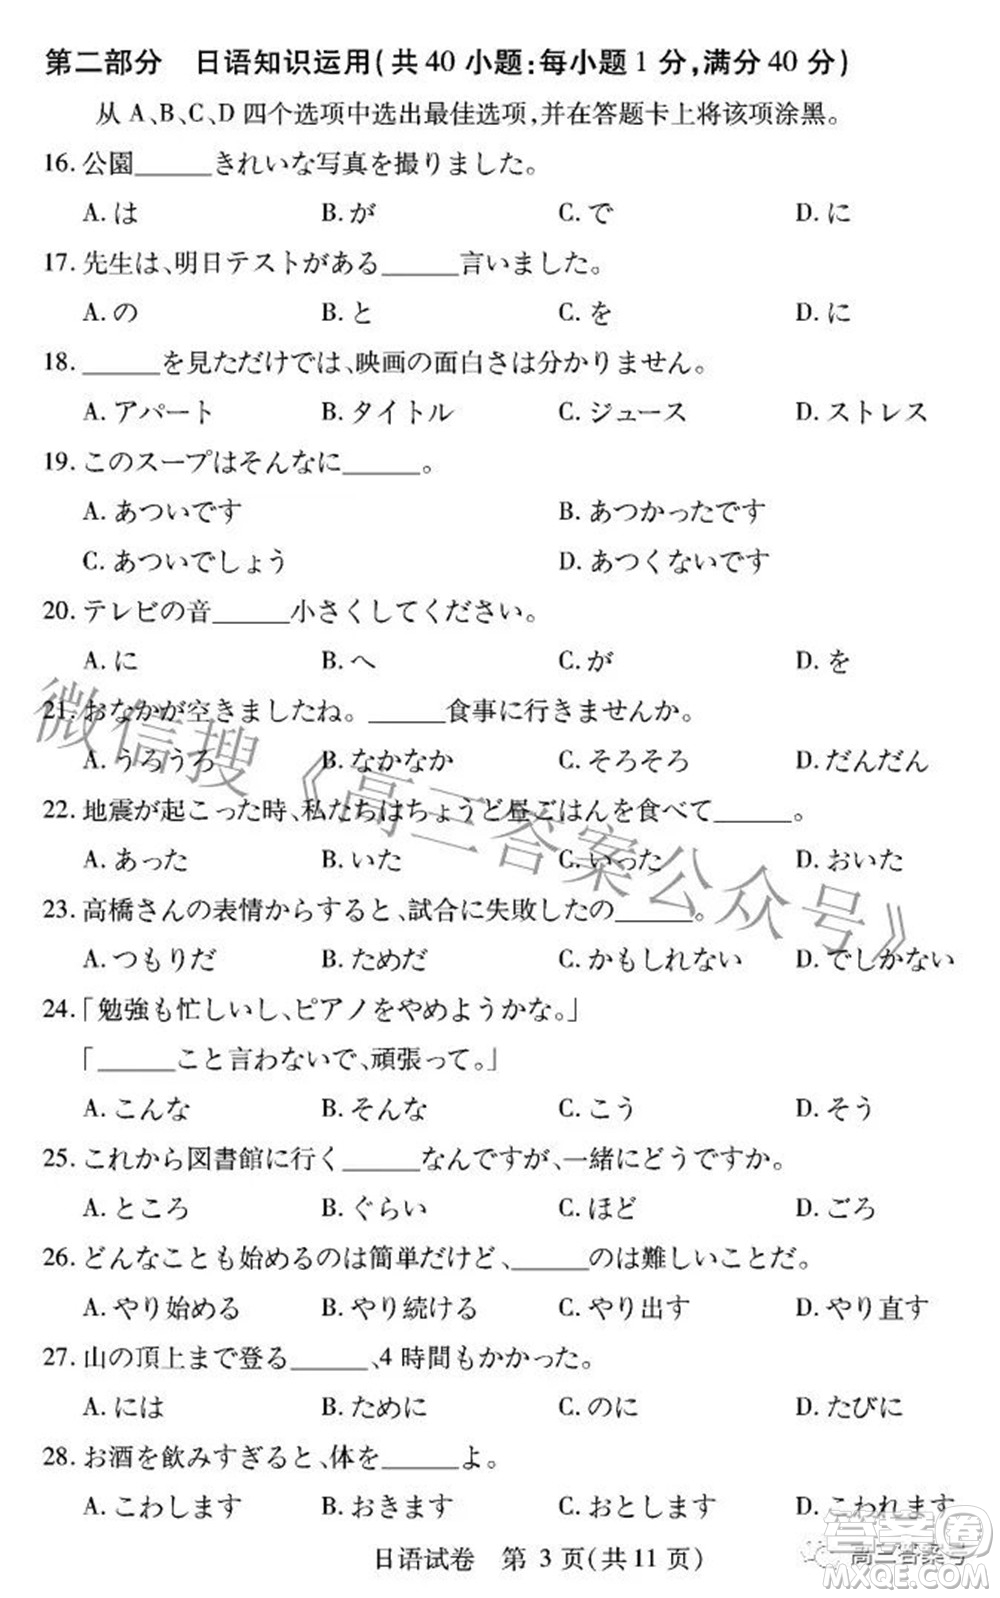 第二部分 日语知识运用(共40小题:每小题1分,满分40分)
从A、B、C、D四个选项中选出最佳选项,并在答题卡上将该项涂黑。
16. 公園______きれいな写真を撮りました。
A. は B. が C. で D. に
17. 先生は、明日テストがある______言いました。
A. の B. と C. を D. に
18. ______を見ただけでは、映画の面白さは分かりません。
A. アパート B. タイトル C. ジュース D. ストレス
19. このスープはそんなに______。
A. あついです B. あつかったです
C. あついでしょう D. あつくないです
20. テレビの音______小さくしてください。
A. に B. へ C. が D. を
21. おなかが空きましたね。______食事に行きませんか。
A. うろうろ B. なかなか C. そろそろ D. だんだん
22. 地震が起こった時、私たちはちょうど昼ごはんを食べて______。
A. あった B. いた C. いった D. おいた
23. 高橋さんの表情からすると、試合に失敗したの______。
A. つもりだ B. ためだ C. かもしれない D. でしかない
24. 「勉強も忙しいし、ピアノをやめようかな。」
「______こと言わないで、頑張って。」
A. こんな B. そんな C. こう D. そう
25. これから図書館に行く______なんですが、一緒にどうですか。
A. ところ B. ぐらい C. ほど D. ごろ
26. どんなことも始めるのは簡単だけど、______のは難しいことだ。
A. やり始める B. やり続ける C. やり出す D. やり直す
27. 山の頂上まで登る______、4時間もかかった。
A. には B. ために C. のに D. たびに
28. お酒を飲みすぎると、体を______よ。
A. こわします B. おきます C. おとします D. こわれます
日语试卷 第3页(共11页)
微信搜《高三答案公众号》
高三答案号
答案卷
MXQE.COM